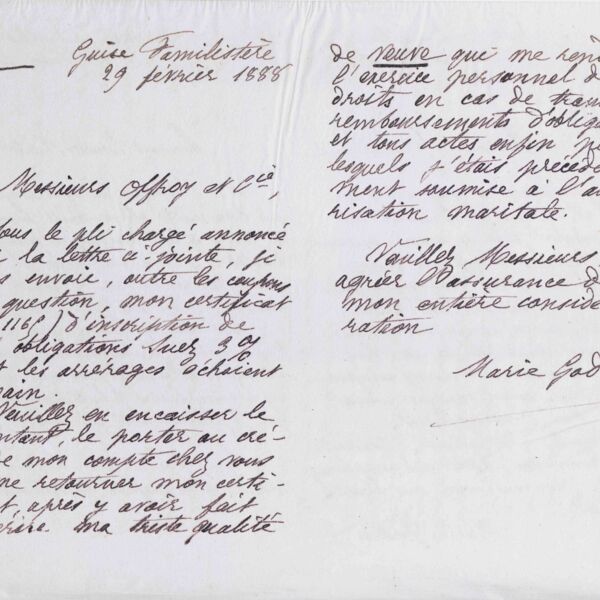 Guise Familistère
29 février 1888
Messieurs Offroy et Cie,
ous le pli chargé annoncé
la lettre ci-jointe, je
s envoie, outre les coupons
question, mon certificat
d'inscription de
obligations Suez 3%
t les arrérages échoient
ain.
Veuillez en encaisser le
ntant, le porter au cré-
e mon compte chez vous
me retourner mon certi-
t, après y avoir fait
crire ma triste qualité
de veuve qui me rend
l'exercice personnel d
droits en cas de trans
remboursements d'oblig
et tous actes enfin p
lesquels j'étais précéde
ment soumise à l'au
risation maritale.
Veuillez Messieurs
agréer l'assurance d
mon entière considé
ration
Marie God